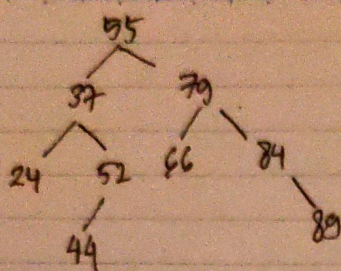 55
37 79
24 52 66 84
44 89